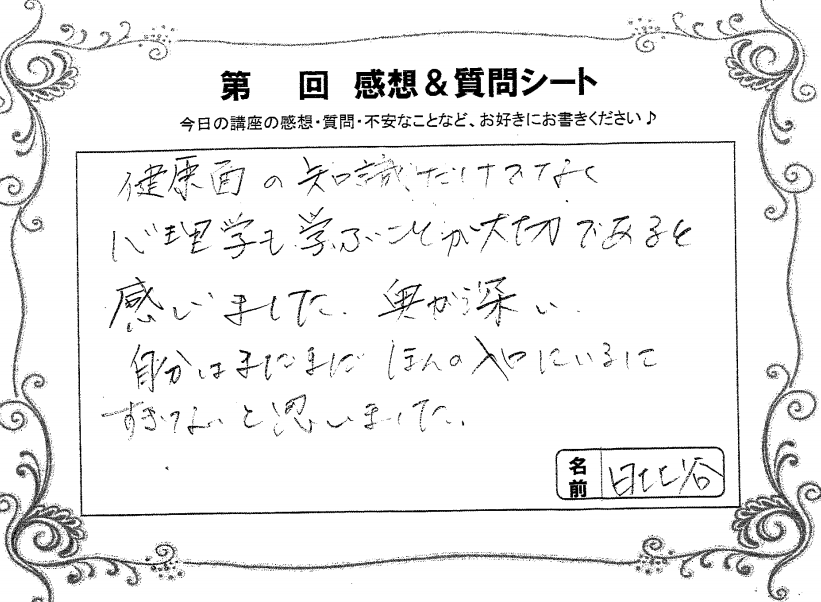 第 回 感想&質問シート
今日の講座の感想・質問・不安なことなど、お好きにお書きください♪
健康面の知識だけでなく
心理学も学ぶことが大切であると
感じました。奥が深い。
自分はまだまだ ほんの入口にいるに
すぎないと思いました。
名前 日比谷